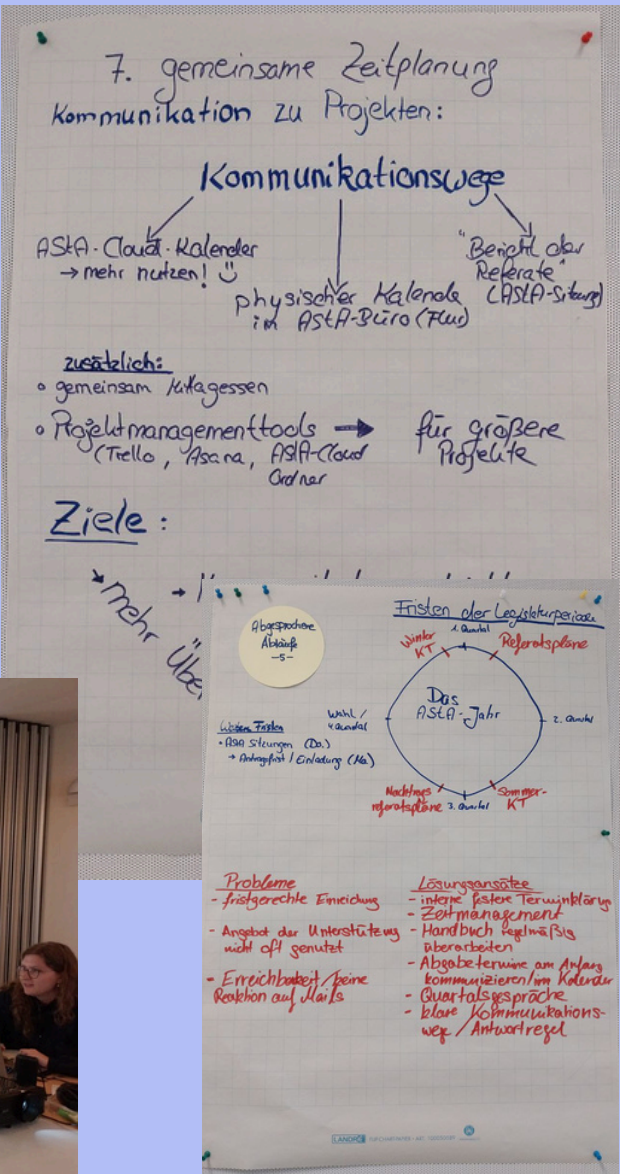 7. gemeinsame Zeitplanung
Kommunikation zu Projekten:
Kommunikationswege
AStA-Cloud-Kalender
→ mehr nutzen!
physischer Kalende
im AStA-Büro (Flur)
"Bericht der
Referate"
(AStA-Sitzung)
zusätzlich:
gemeinsam Mittagessen
Projektmanagementtools → für größere
Projekte
(Trello, Asana, AStA-Cloud
Ordner
Ziele:
→ mehr Über
Abgesprochene
Abläufe
-5-
Fristen der Legislaturperiode
1. Quartal
Winter
KT
Referatspläne
Das
AStA-Jahr
Wahl /
4. Quartal
2. Quartal
Nachtrags
referatspläne
3. Quartal
Sommer-
KT
Weitere Fristen
• AStA Sitzungen (Do.)
→ Antragsfrist / Einladung (Mo.)
Probleme
- fristgerechte Einreichung
- Angebot der Unterstützung
nicht oft genutzt
- Erreichbarkeit / keine
Reaktion auf Mails
Lösungsansätze
- interne festere Terminklärung
- Zeitmanagement
- Handbuch regelmäßig
überarbeiten
- Abgabetermine am Anfang
kommunizieren/im Kalender
- Quartalsgespräche
- klare Kommunikations-
wege / Antwortregel